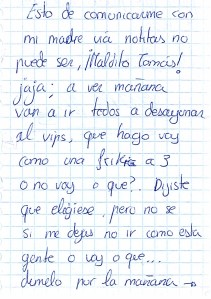 Esto de comunicarme con
mi madre vía notitas no
puede ser, ¡Maldito Tomás!
jaja; a ver mañana
van a ir todos a desayunar
al vips, que hago voy
como una friki a 3
o no voy o que?.. Dijiste
que eligiese pero no se
si me dejas no ir como esta
gente o voy o que...
dímelo por la mañana →